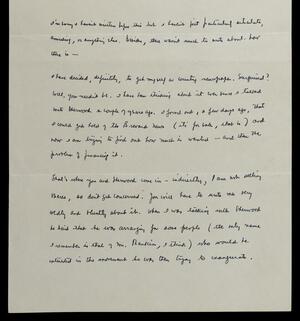 I'm sorry I haven't written before this but I haven't felt particularly
or anything else. Besides, there wasn't much to write about. Now
there is —
I have decided, definitely, to get myself a country newspaper. Surprised?
Well, you needn't be. I have been thinking about it ever since I talked
with Sherwood a couple of years ago. I found out, a few days ago, that
I could get hold of the Record News (it's for sale, that is) and
now I am trying to find out how much is wanted — and then the
problem of financing it.
That's where you and Sherwood come in — indirectly, I am not selling
shares, so don't get concerned. You will have to write me very
and bluntly about it. When I was talking with Sherwood
he said that he was arranging for some people (the only name
I remember is that of Mr. , I think) who would be
interested in the movement he was then trying to inaugurate.